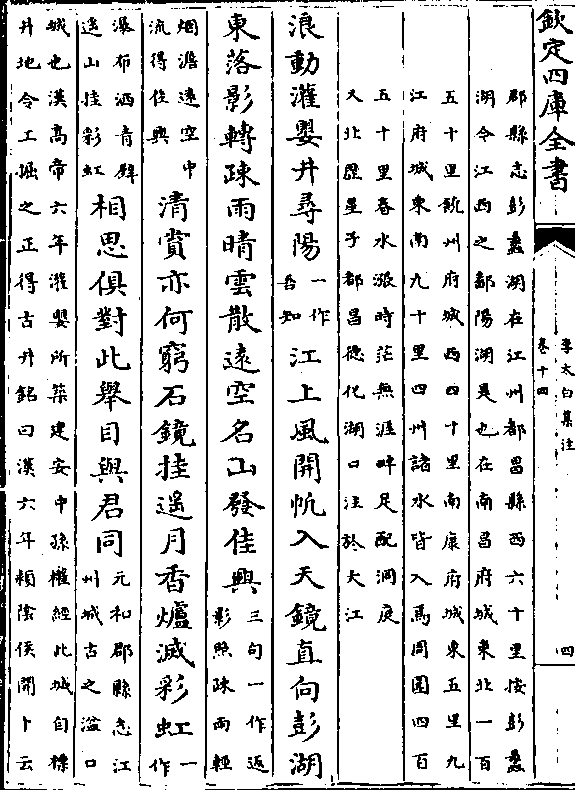 欽定四庫全書
李太白集注
卷十四
四
郡縣志彭蠡湖在江州都昌縣西六十里按彭蠡
湖今江西之鄱陽湖是也在南昌府城東北一百
五十里饒州府城西四十里南康府城東五里九
江府城東南九十里四州諸水皆入焉周圍四百
五十里春水漲時茫無涯畔足配洞庭
又北歷星子都昌德化湖口注於大江
浪動灌嬰井尋陽一作吾知江上風開帆入天鏡直向彭湖
東落影轉疎雨晴雲散遠空名山發佳興三句一作返影照疎雨輕
烟澹遠空中流得佳興清賞亦何窮石鏡挂遥月香爐滅彩虹一作
瀑布洒青壁遥山挂彩虹相思俱對此舉目與君同元和郡縣志江州城古之湓口
城也漢高帝六年灌嬰所築建安中孫權經此城自標
井地令工掘之正得古井銘曰漢六年潁陰侯開卜云